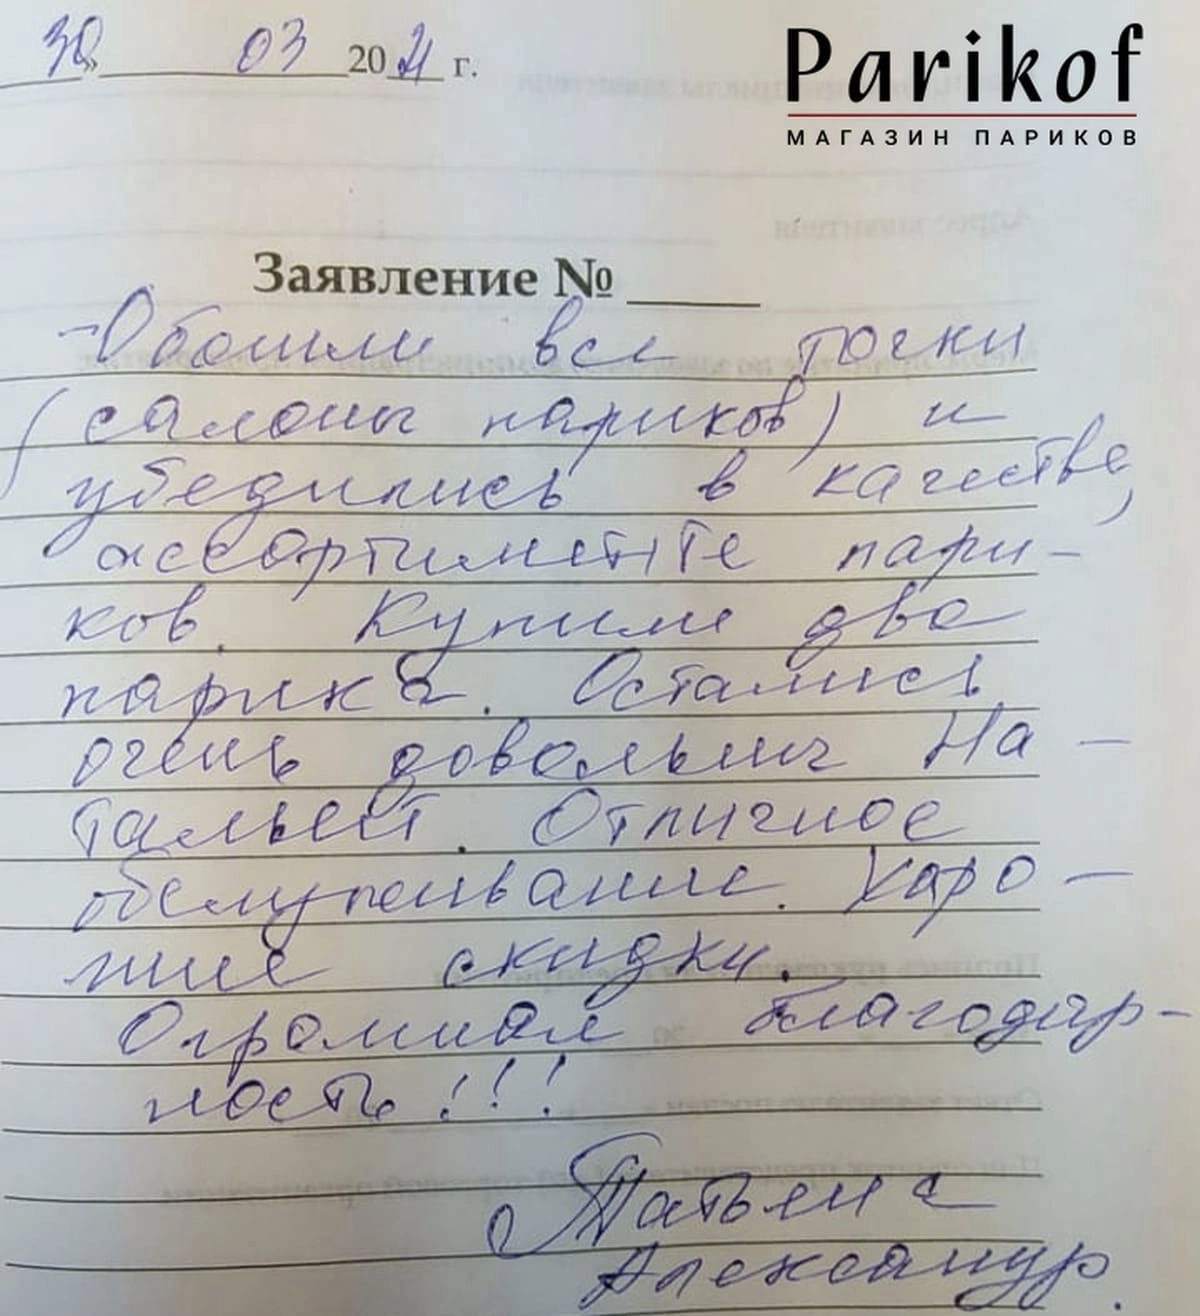 30» 03 2021 г.
Parikof
МАГАЗИН ПАРИКОВ
Заявление № ____
-Обошли все точки
(салоны париков) и
убедились в качестве,
ассортименте пари-
ков. Купили два
парика. Остались
очень довольны На-
тальей. Отличное
обслуживание. Хоро-
шие скидки.
Огромная благодар-
ность!!!
Татьяна
Александр.